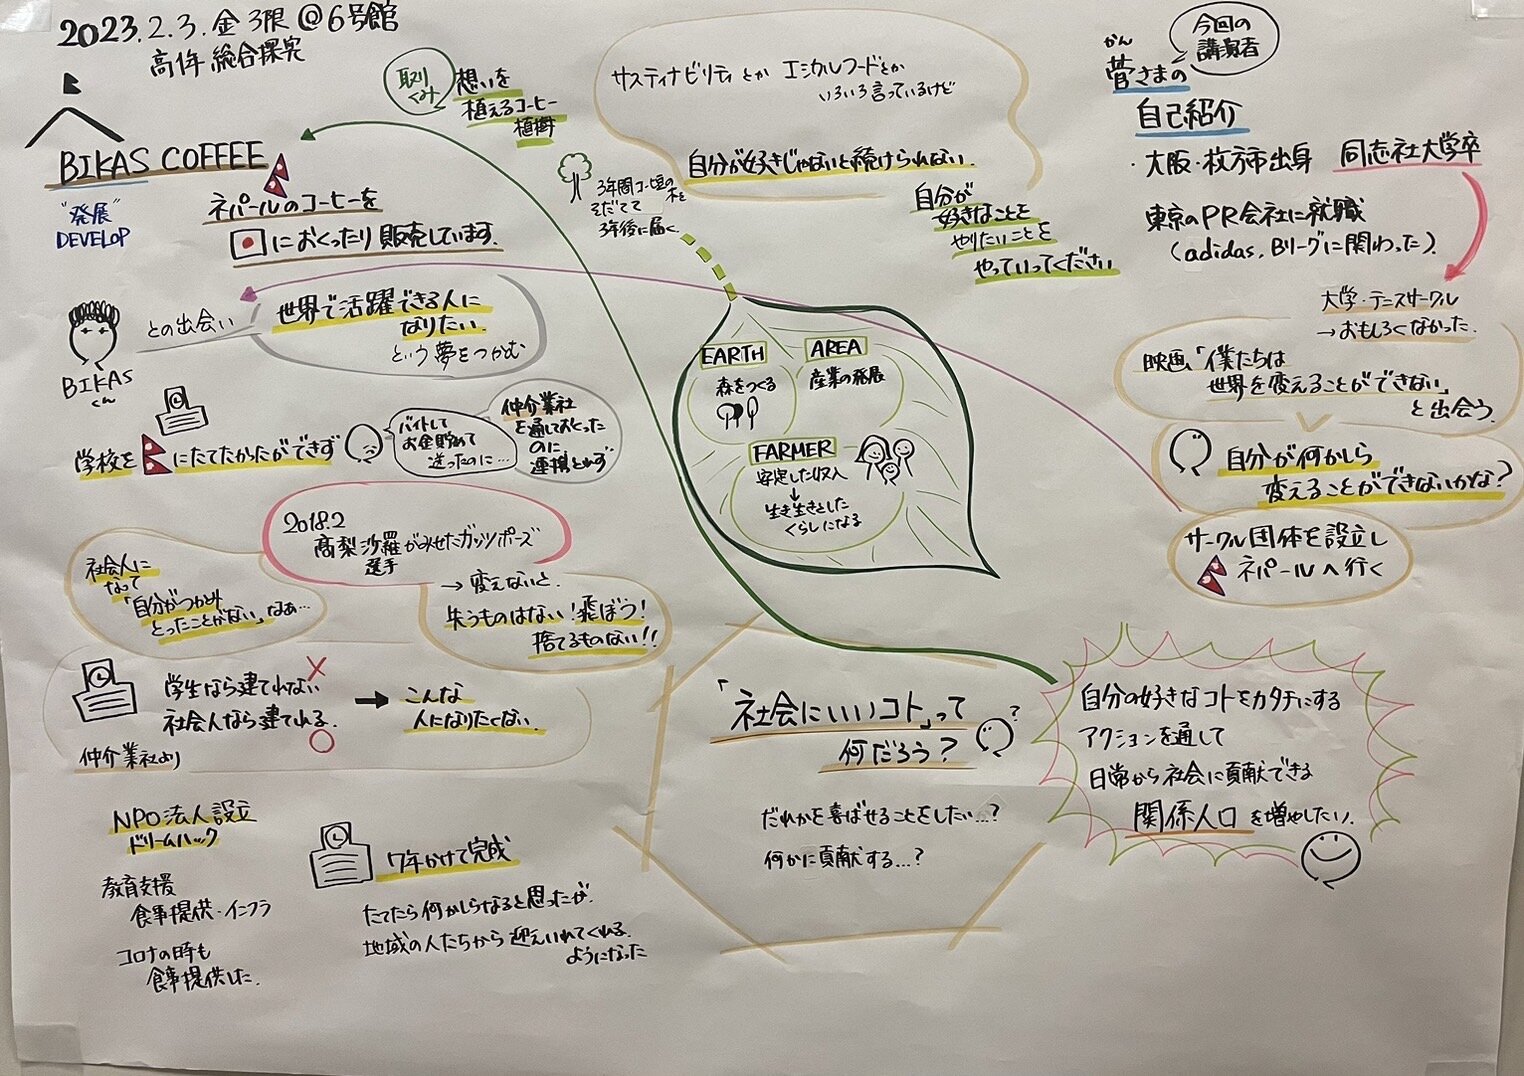 2023.2.3.金 3限 @6号館
高1年 総合探究
BIKAS COFFEE
"発展"
DEVELOP
ネパールのコーヒーを
におくったり販売しています.
取り
くみ
想いを
植えるコーヒー
植樹
3年間コーヒーの
木を
そだてて
3年後に届く.
サスティナビリティとか エシカルフードとか
いろいろ言っているけど
自分が好きじゃないと続けられない.
自分が
好きなことを
やりたいことを
やっていってください
今回の
講演者
かん
菅さまの
自己紹介
・大阪・枚方市出身 同志社大学卒
東京のPR会社に就職
(adidas, Bリーグに関わった).
大学・テニスサークル
→おもしろくなかった.
映画「僕たちは
世界を変えることができない」
と出会う.
自分が何かしら
変えることができないかな?
サークル団体を設立し
ネパールへ行く
BIKAS
くん
との出会い
世界で活躍できる人に
なりたい.
という夢をつかむ
学校を にたてたかったができず
バイトして
お金貯めて
送ったのに…
仲介業社
を通しておくった
のに
連携とれず
EARTH
森をつくる
AREA
産業の発展
FARMER
安定した収入
↓
生き生きとした
くらしになる
2018.2
高梨沙羅がみせたガッツポーズ
選手
→変えないと.
失うものはない!飛ぼう!
捨てるものない!!
社会人に
なって
「自分がつかみ
とったことがない」なぁ…
学生なら建てれない ×
社会人なら建てれる. ○
仲介業社より
→ こんな
人になりたくない.
NPO法人設立
ドリームハック
教育支援
食事提供・インフラ
コロナの時も
食事提供した.
7年かけて完成
たてたら何かしらなると思ったが.
地域の人たちから迎えいれてくれる.
ようになった
「社会にいいコト」って
何だろう?
?
だれかを喜ばせることをしたい…?
何かに貢献する…?
自分の好きなコトをカタチにする
アクションを通して
日常から社会に貢献できる
関係人口を増やしたい.